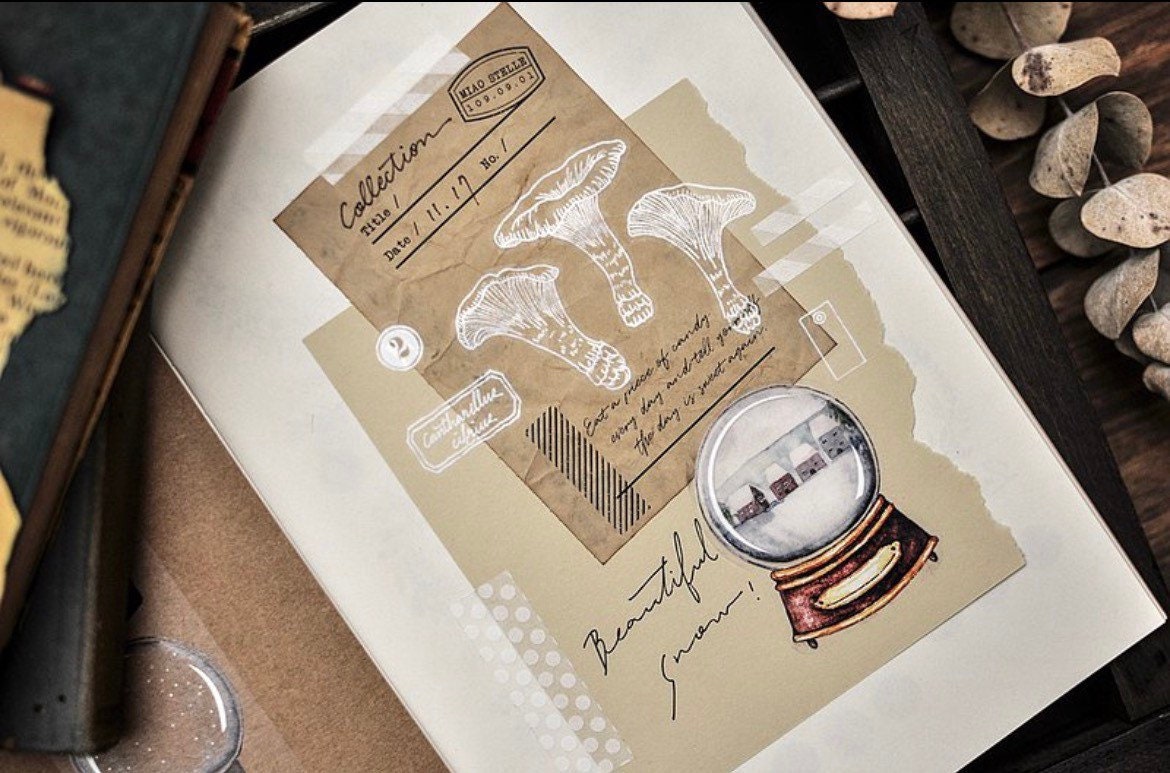 MIAO STELLE
109.09.01
Collection
Title /
No. /
Date / 11.17
2
Eat a piece of candy
every day and tell yourself
the day is sweet again.
Beautiful
snow!